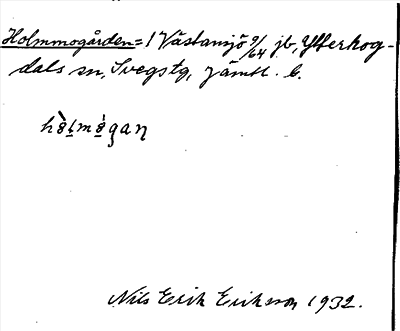 Holmmogården = 1 Västansjö 9/64 jb, Ytterhog-
dals sn, Svegs tg, Jämtl. l.
hòlmògan
Nils Erik Eriksson 1932.